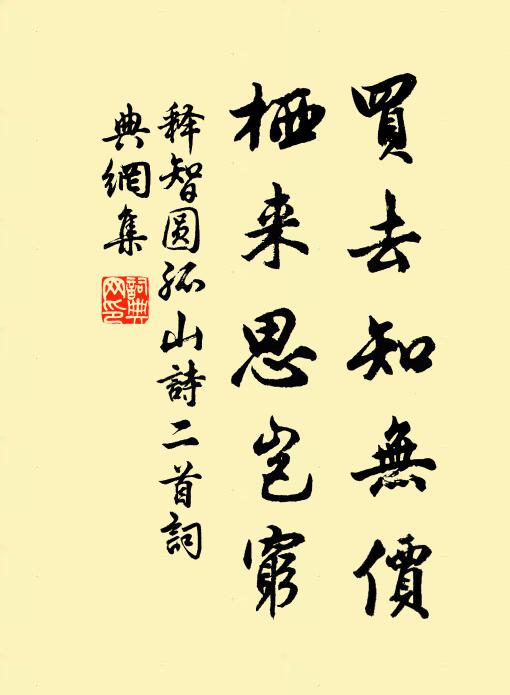 買去知無價
栖来思岂窮
释智圆孤山詩二首詞
典網集
詞典
网印